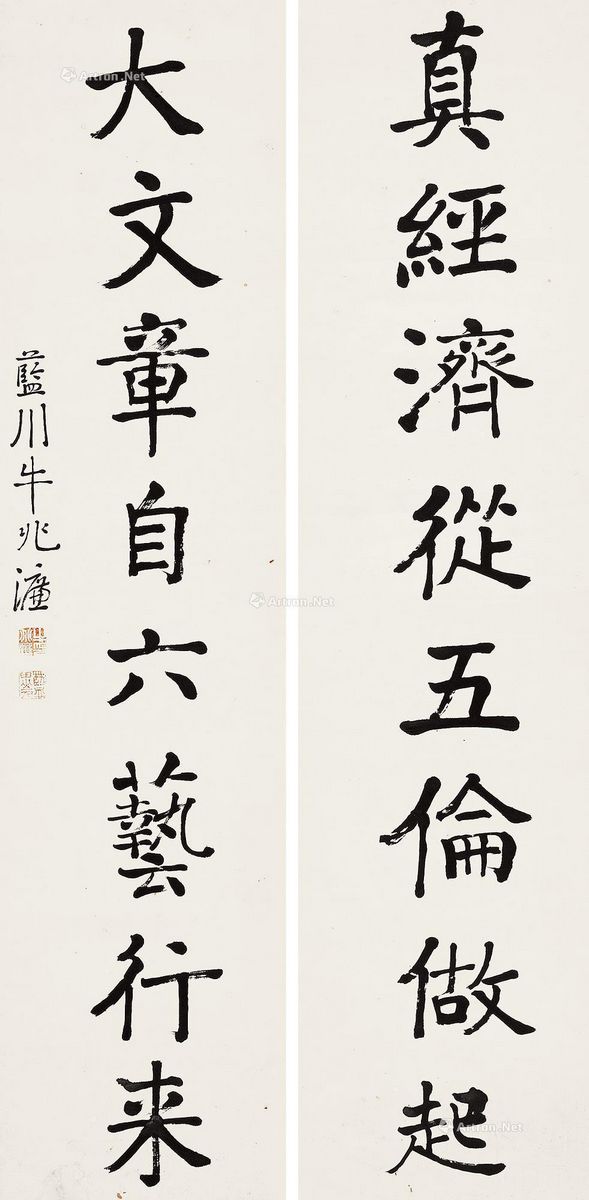 真經濟從五倫做起
大文章自六藝行来
藍川牛兆濂
Artron.Net
Artron.Net
Artron.Net